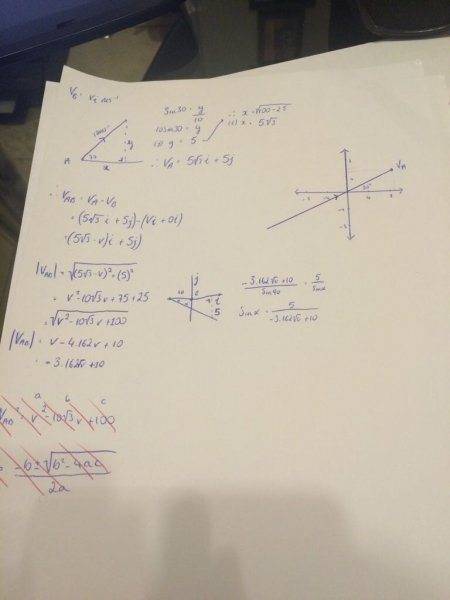 V_B = V_B ms⁻¹
10ms⁻¹
A
30
x
y
Sin30 = y/10
10sin30 = y
(j) y = 5
∴ x = √100-25
(i) x = 5√3
∴ V_A = 5√3i + 5j
V_A
30°
∴ V_AB = V_A - V_B
= (5√3i + 5j) - (Vi + 0j)
= (5√3 - v)i + 5j
|V_AB| = √(5√3 - v)² + (5)²
= v² - 10√3v + 75 + 25
= √v² - 10√3v + 100
|V_AB| = v - 4.162v + 10
= -3.162v + 10
j
10
i
5
-3.162v + 10/Sin90 = 5/Sinα
Sinα = 5/-3.162v + 10
a b c
V_AB = v² - 10√3v + 100
-b ± √b² - 4ac/2a